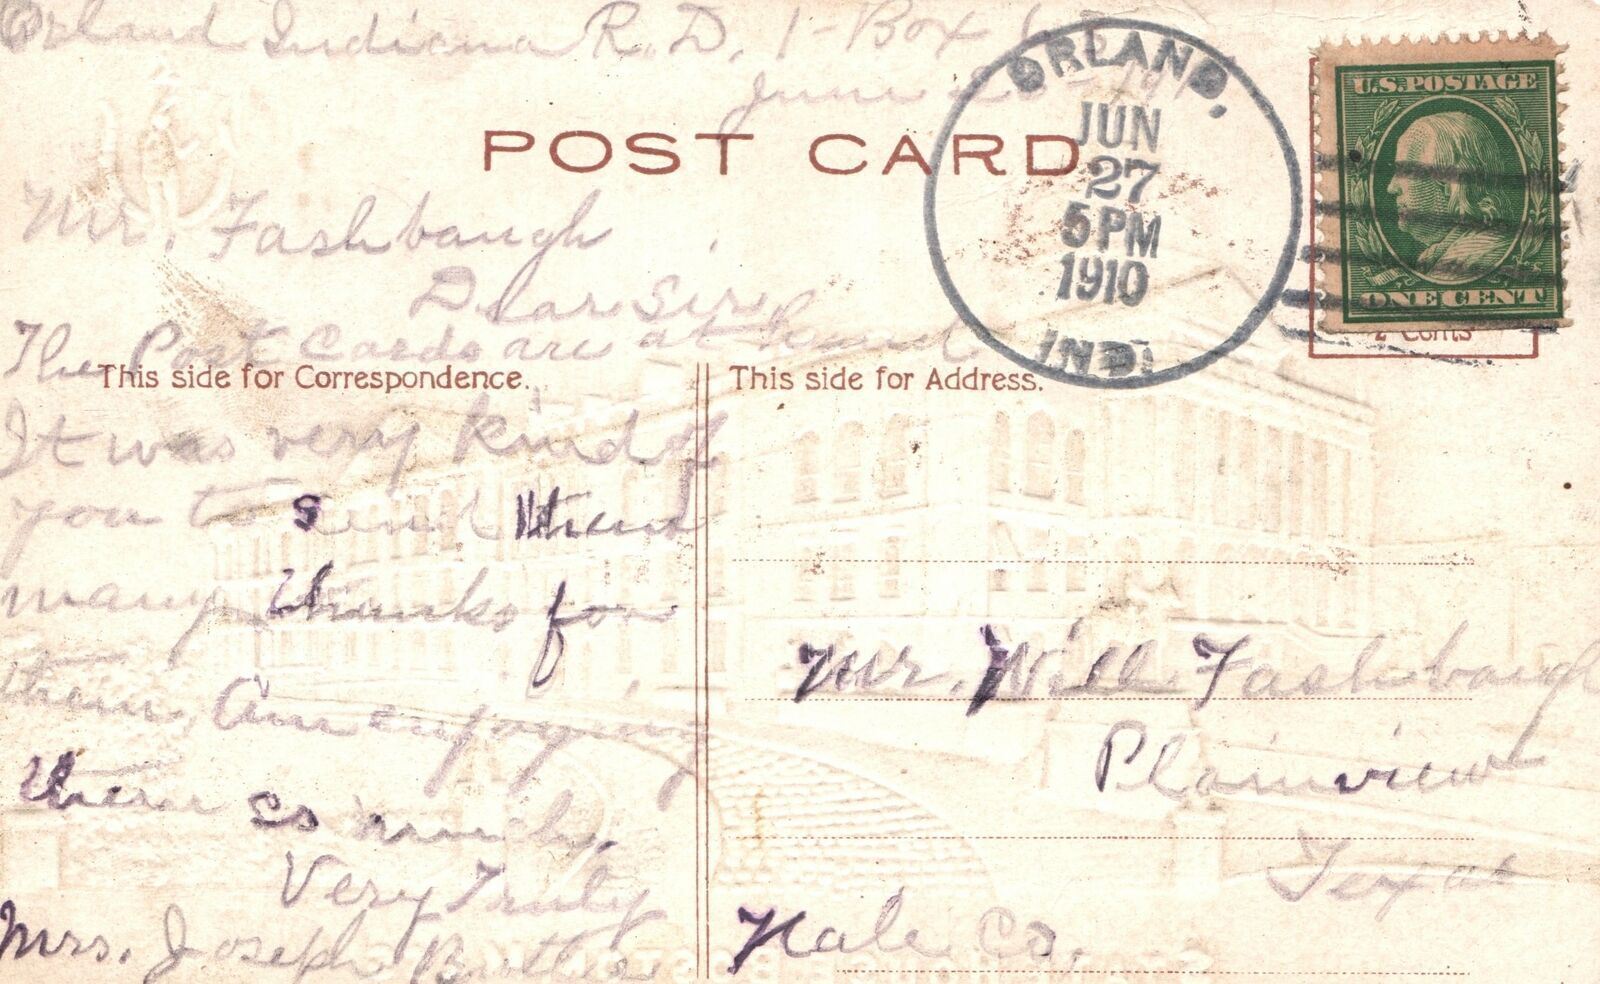 Orland Indiana R.D. 1-Box
June
POST CARD
ORLAND,
JUN
27
5 PM
1910
IND.
U.S. POSTAGE
ONE CENT
2 Cents
Mr. Fashbaugh
Dear Sir,
The Post Cards are at hand
This side for Correspondence.
It was very kind of
you to send them
many thanks for
them. Am enjoying
them so much.
Very Truly
Mrs. Joseph Butler
This side for Address.
Mr. Will Fashbaugh
Plainview
Texas
Hale Co.